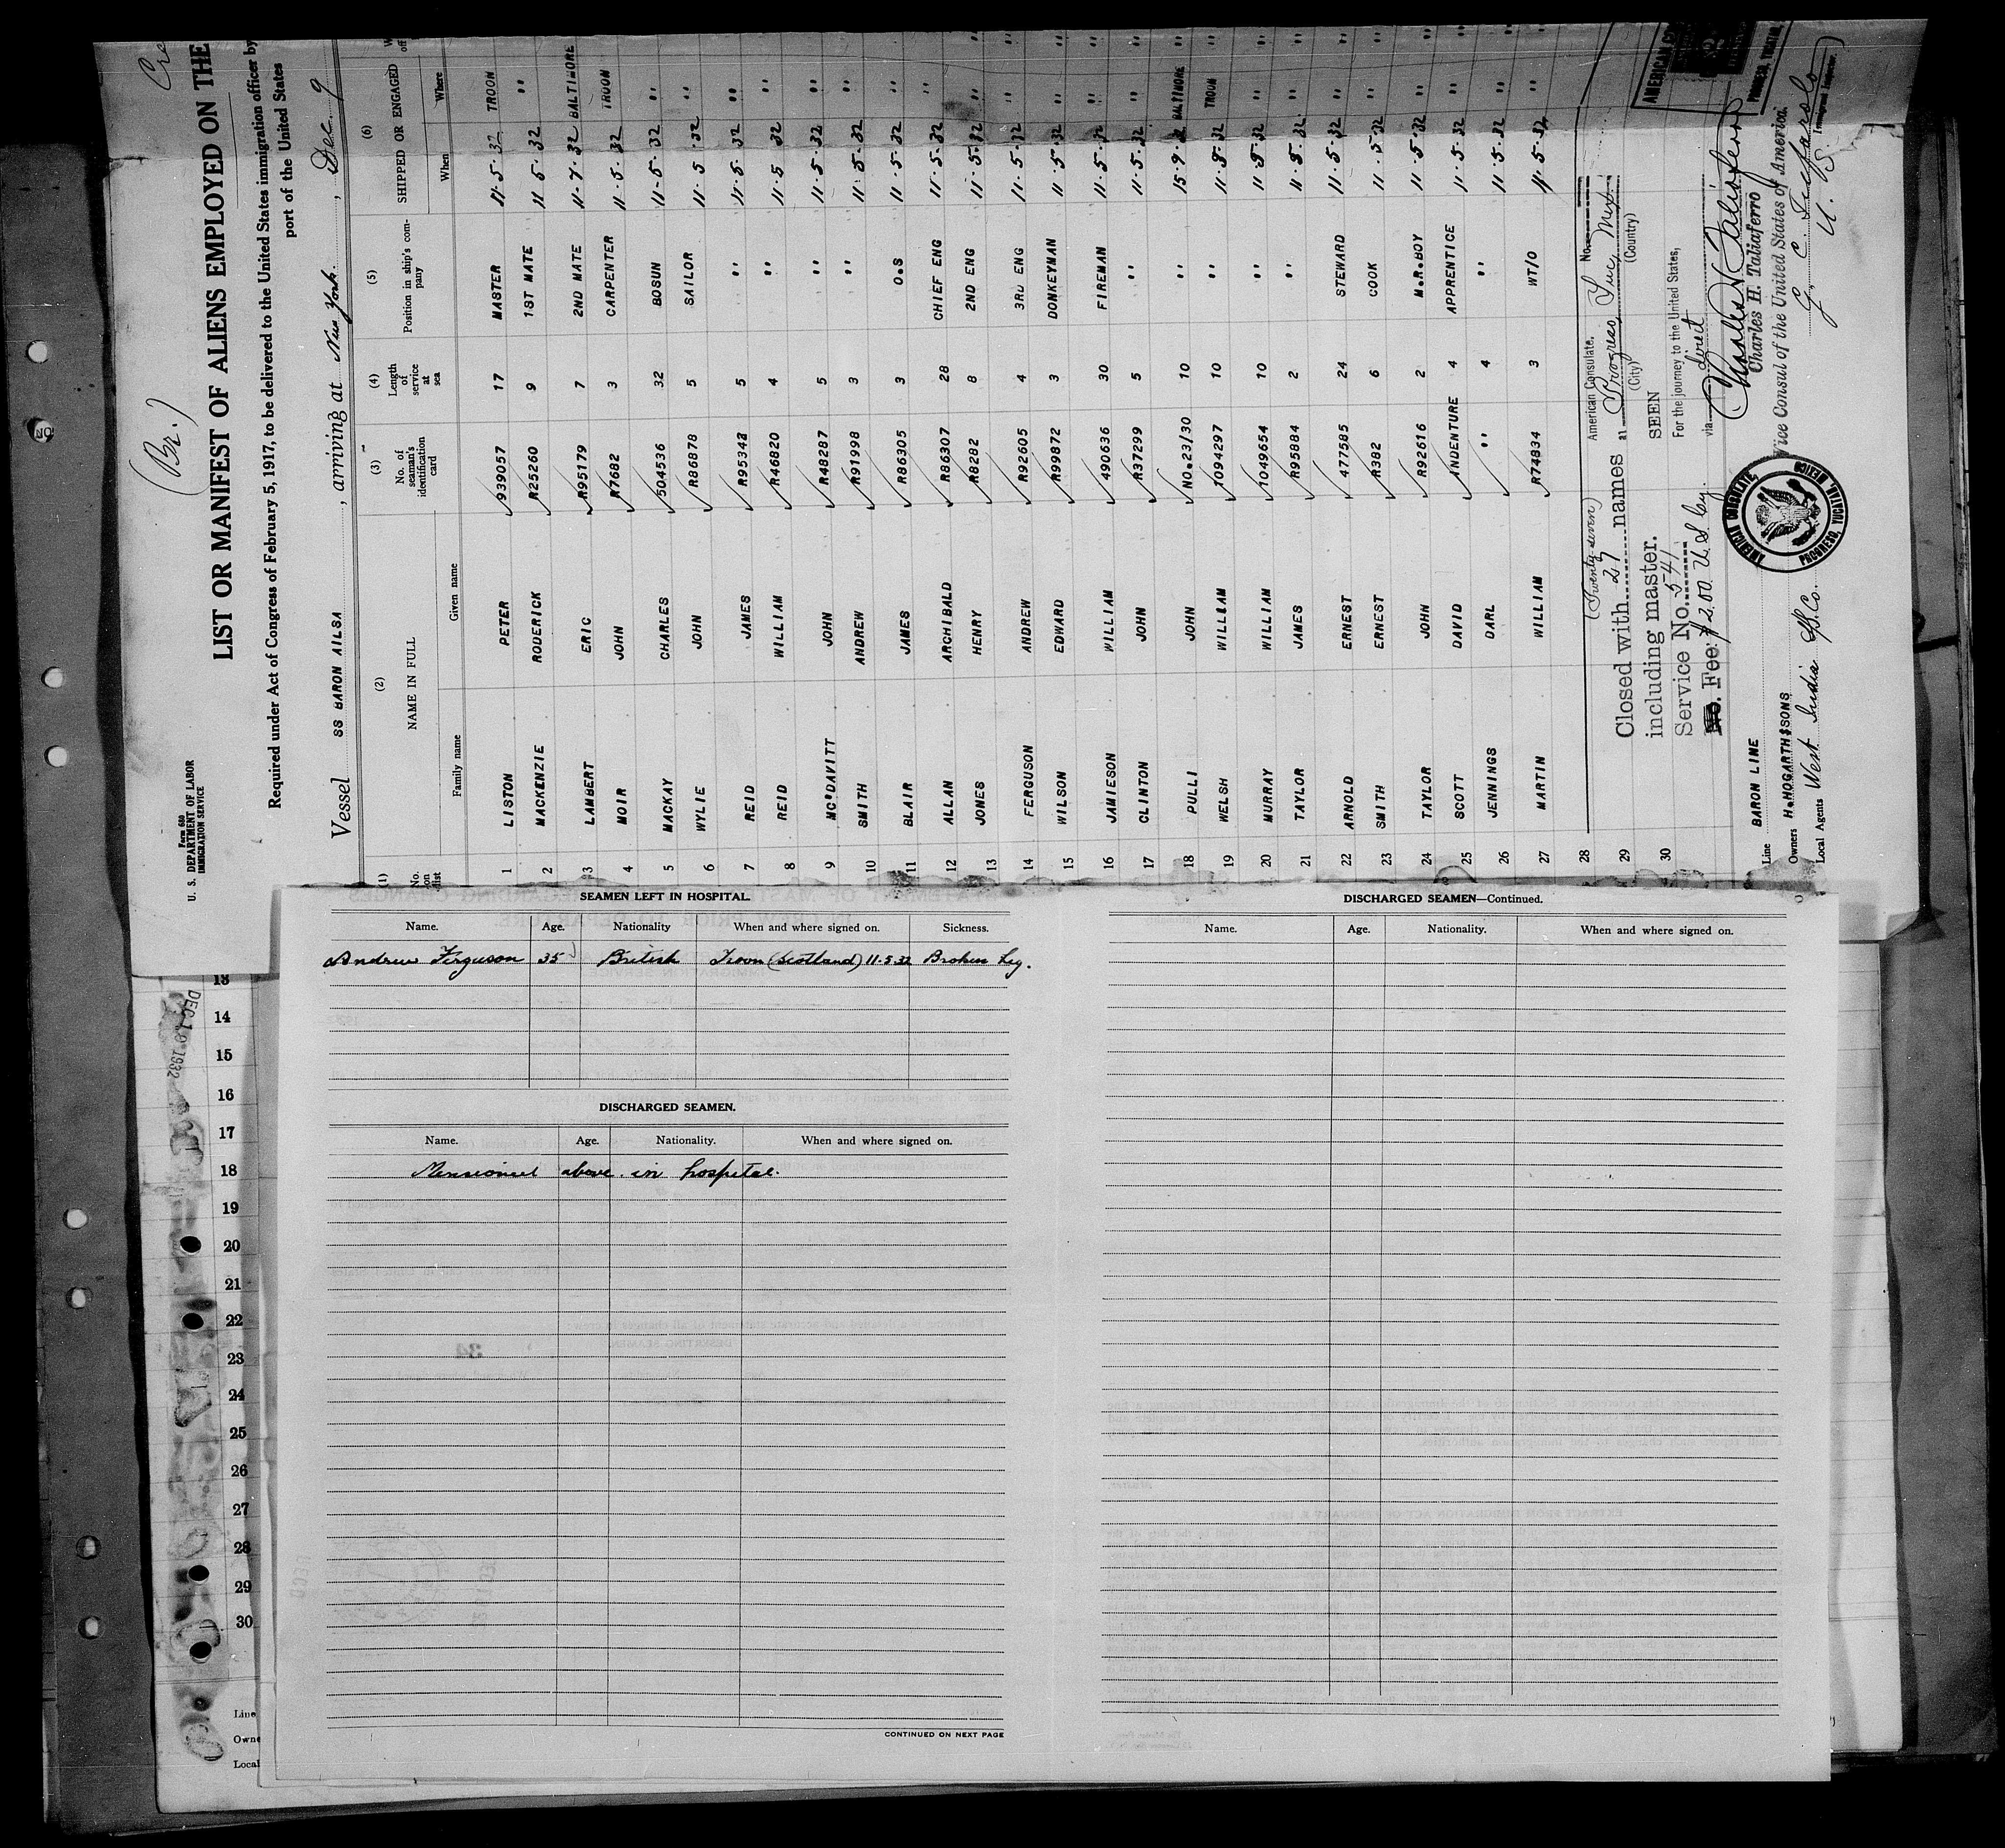 (Br.)
Form 680
U. S. DEPARTMENT OF LABOR
IMMIGRATION SERVICE
LIST OR MANIFEST OF ALIENS EMPLOYED ON THE
Required under Act of Congress of February 5, 1917, to be delivered to the United States immigration officer by
port of the United States
Vessel SS BARON AILSA, arriving at New York, Dec. 9
(1) (2) (3) (4) (5) (6)
No. on list NAME IN FULL No. of seaman's identification card Length of service at sea Position in ship's company SHIPPED OR ENGAGED
Family name Given name When Where
1 LISTON PETER 939057 17 MASTER 11.5.32 TROON
2 MACKENZIE RODERICK R25260 9 1ST MATE 11 5.32 "
3 LAMBERT ERIC R95179 7 2ND MATE 11.7.32 BALTIMORE
4 MOIR JOHN R7682 3 CARPENTER 11.5.32 TROON
5 MACKAY CHARLES 504536 32 BOSUN 11.5.32 "
6 WYLIE JOHN R86878 5 SAILOR 11 5.32 "
7 REID JAMES R95342 5 " 11.5.32 "
8 REID WILLIAM R46820 4 " 11.5.32 "
9 MC"DAVITT JOHN R48287 5 " 11.5.32 "
10 SMITH ANDREW R91998 3 " 11.5.32 "
11 BLAIR JAMES R86305 3 O.S 11.5.32 "
12 ALLAN ARCHIBALD R86307 28 CHIEF ENG 11.5.32 "
13 JONES HENRY R8282 8 2ND ENG 11.5.32 "
14 FERGUSON ANDREW R92605 4 3RD ENG 11.5.32 "
15 WILSON EDWARD R99872 3 DONKEYMAN 11.5.32 "
16 JAMIESON WILLIAM 490636 30 FIREMAN 11.5.32 "
17 CLINTON JOHN R37299 5 " 11.5.32 "
18 PULLI JOHN NO.23/30 10 " 15.9.32 BALTIMORE
19 WELSH WILLIAM 1094297 10 " 11.5.32 TROON
20 MURRAY WILLIAM 1049654 10 " 11.5.32 "
21 TAYLOR JAMES R95884 2 " 11.5.32 "
22 ARNOLD ERNEST 477585 24 STEWARD 11.5.32 "
23 SMITH ERNEST R382 6 COOK 11.5.32 "
24 TAYLOR JOHN R92616 2 M.R.BOY 11.5.32 "
25 SCOTT DAVID INDENTURE 4 APPRENTICE 11.5.32 "
26 JENNINGS DARL " 4 " 11.5.32 "
27 MARTIN WILLIAM R74834 3 WT/O 11.5.32 "
28
29
30
(Twenty-seven)
Closed with 27 names
including master.
Service No. 541
No. Fee: $2.00 U.S.Cy.
American Consulate, No.
at Progreso, Yuc., Mex.
(City) (Country)
SEEN
For the journey to the United States,
via direct
Charles H. Taliaferro
Charles H. Taliaferro
Vice Consul of the United States of America.
AMERICAN CONSULATE, PROGRESO, YUCATAN, MEXICO
AMERICAN CO
PROGRESO, YUCATAN
Line BARON LINE
Owners H.HOGARTH$SONS
Local Agents West India S/S.Co.
Immigrant Inspector.
SEAMEN LEFT IN HOSPITAL.
Name. Age. Nationality When and where signed on. Sickness.
Andrew Ferguson 35 British Troon (Scotland) 11.5.32 Broken Leg.
DISCHARGED SEAMEN.
Name. Age. Nationality. When and where signed on.
above in hospital.
CONTINUED ON NEXT PAGE
DISCHARGED SEAMEN—Continued.
Name. Age. Nationality. When and where signed on.
13
14
15
16
17
18
19
20
21
22
23
24
25
26
27
28
29
30
Line
Owne
Local